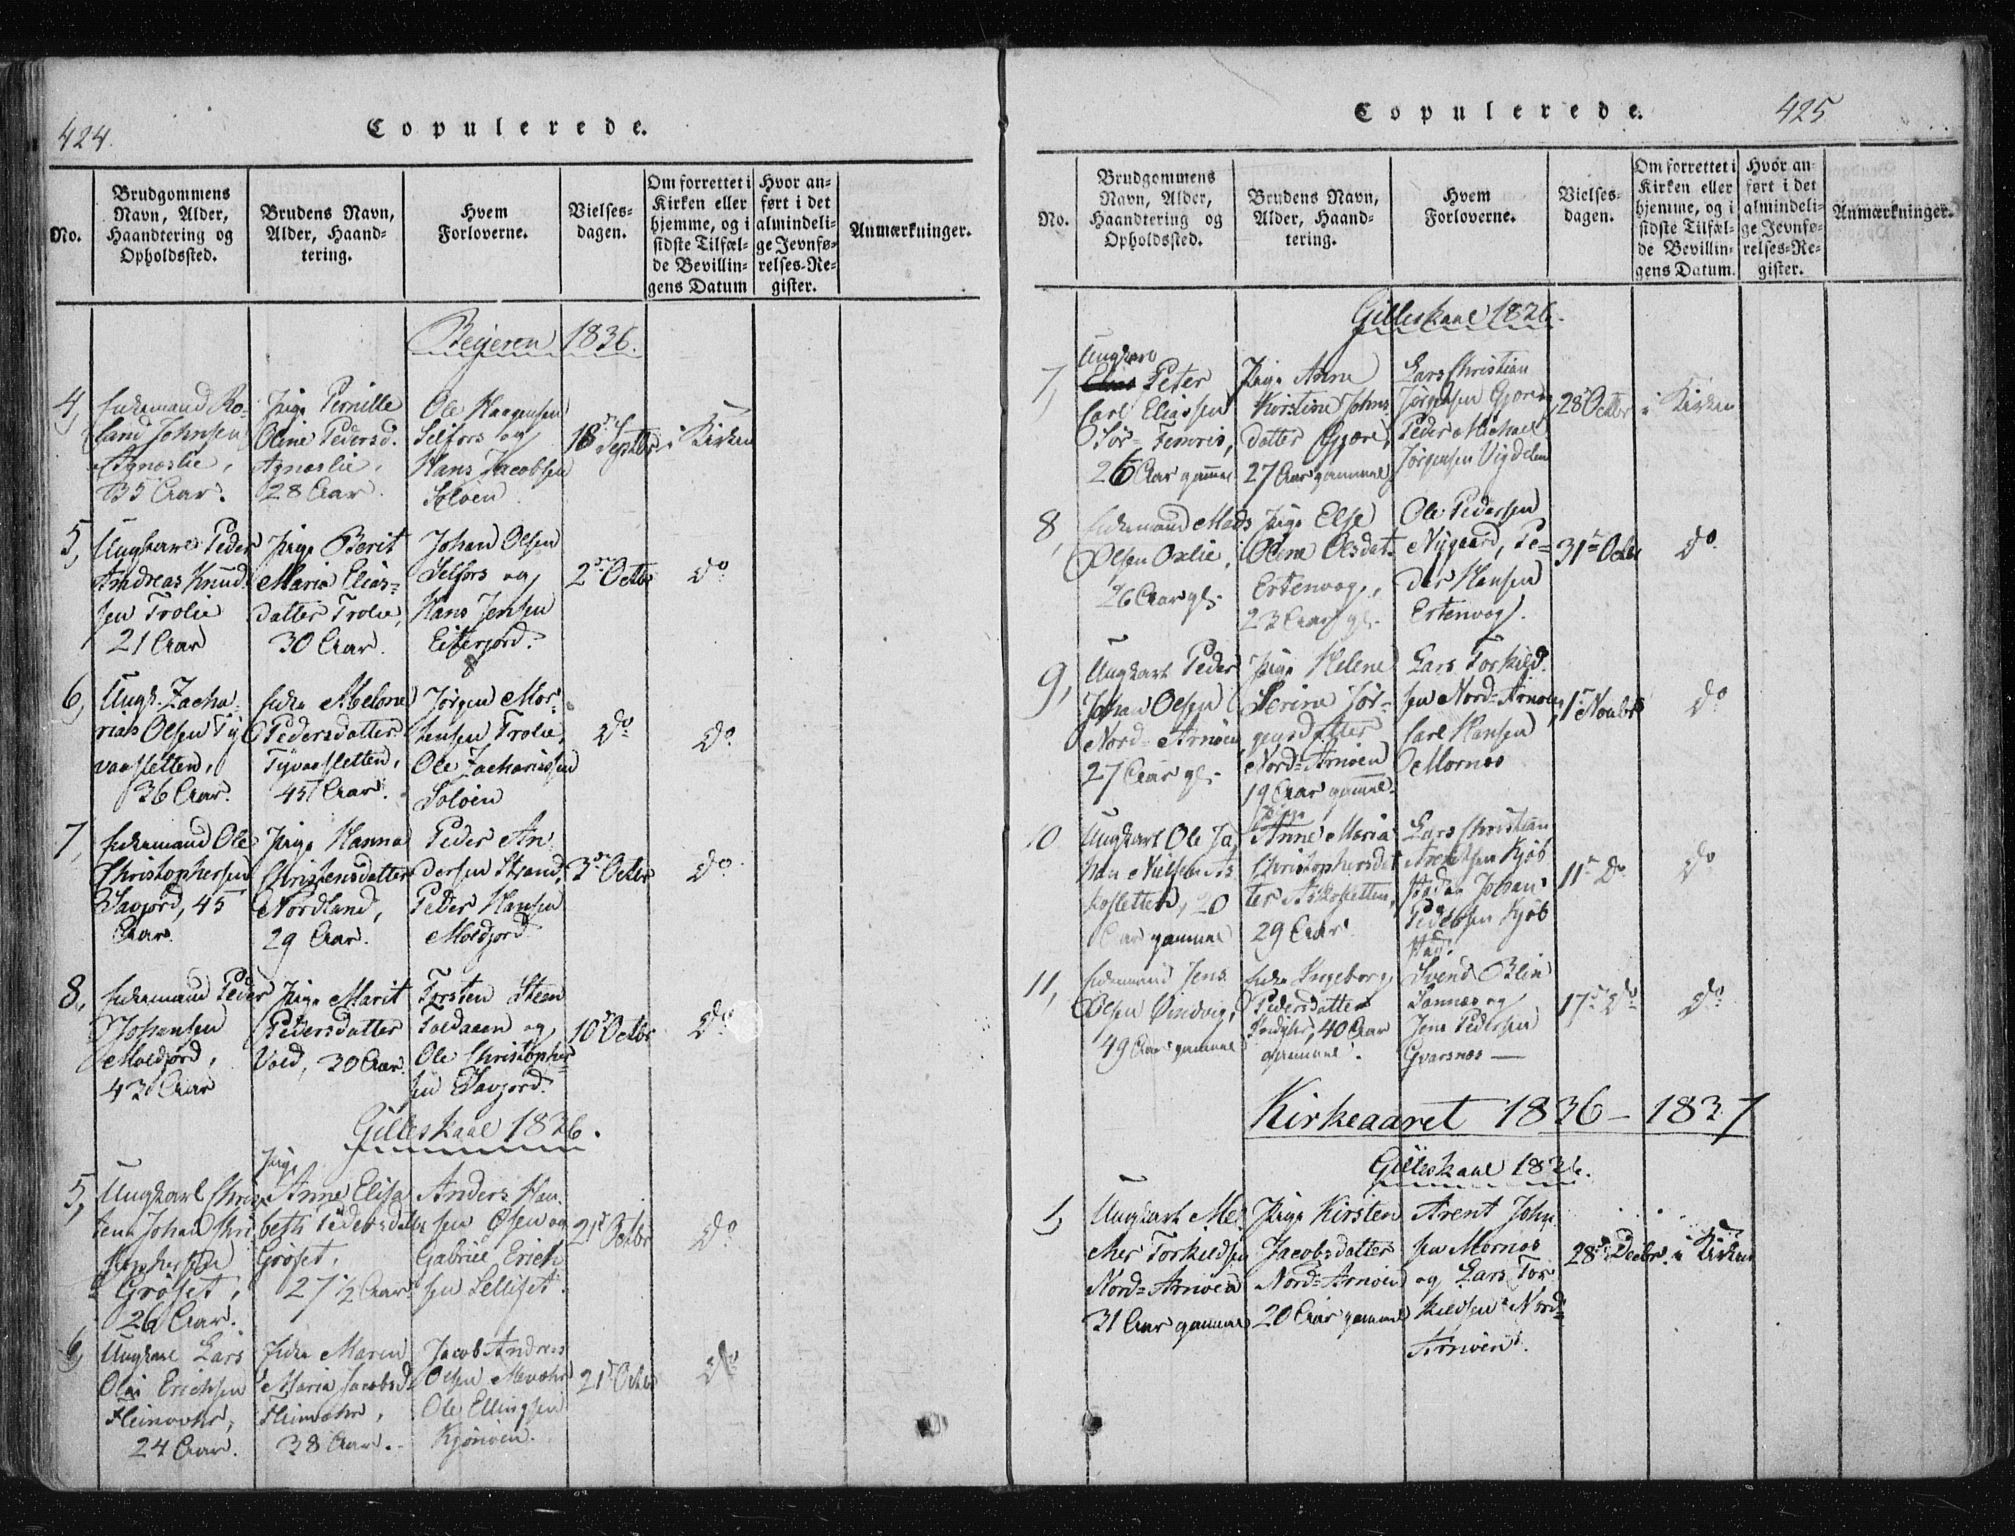 424.
Copulerede.
No.
Brudgommens Navn, Alder, Haandtering og Opholdssted.
Brudens Navn, Alder, Haandtering.
Hvem Forloverne.
Vielsesdagen.
Om forrettet i Kirken eller hjemme, og i sidste Tilfælde Bevillingens Datum
Hvor anført i det almindelige Jevnførelses-Register.
Anmærkninger.
Beyeren 1836.
4,
Enkemand Ro-
land Johnsen
Agnæslie,
35 Aar.
Pige Pernille
Oline Pedersd.
Agnæslie,
28 Aar.
Ole Haagensen
Selfors og
Hans Jacobsen
Soløen
18de Septbr
i Kirken
5,
Ungkarl Peder
Andreas Knud-
sen Trolie
21 Aar
Pige Berit
Maria Elias-
datter Trolie,
30 Aar.
Johan Olsen
Selfors og
Hans Jensen
Eiterjord.
2den Octbr
do
6,
Ungk. Zacha-
rias Olsen Ty-
vaasletten,
36 Aar.
Enke Abelone
Pedersdatter
Tyvaasletten,
45 Aar.
Jørgen Mor-
tensen Trolie,
Ole Zachariasen
Soløen
do
do
7,
Enkemand Ole
Christophersen
Savjord, 45
Aar.
Pige Hanna
Christensdatter
Nordland,
29 Aar.
Peder An-
dersen Strand,
Peder Hansen
Moldjord
3die Octbr
do
8,
Enkemand Peder
Johansen
Moldjord,
43 Aar
Pige Marit
Pedersdatter
Vold, 30 Aar.
Torsten Steen
Toldaaen og
Ole Christopher-
sen Savjord.
10de Octbr
do
Gilleskaal 1836.
5,
Ungkarl Chris-
ten Johan Chri-
stophersen
Grøset,
26 Aar.
Pige
Anne Elisa-
beth Pedersdatter
Grøset,
27 1/2 Aar
Anders Han-
sen Øsen og
Gabriel Erich-
sen Selliset.
21de Octbr
do
6,
Ungkarl Lars
Olai Erichsen
Fleinvær,
24 Aar.
Enke Maren
Maria Jacobsd.
Fleinvær,
38 Aar.
Jacob Andreas
Olsen Mevær
Ole Ellingsen
Kjønøen.
21de Octbr
do
425
Copulerede.
No.
Brudgommens Navn, Alder, Haandtering og Opholdssted.
Brudens Navn, Alder, Haandtering.
Hvem Forloverne.
Vielsesdagen.
Om forrettet i Kirken eller hjemme, og i sidste Tilfælde Bevillingens Datum.
Hvor anført i det almindelige Jevnførelses-Register.
Anmærkninger.
Gilleskaal 1836.
7,
Ungkarl
Peter
Carl Eliassen
Sør-Femris,
26 Aar gammel
Pige Anne
Kirstine Johns-
datter Gjære,
27 Aar gammel
Lars Christian
Jørgensen Gjære,
Peder Michael
Jørgensen Vigdelen
28de Octbr
i Kirken
8,
Enkemand Mads
Olsen Oxlie,
26 Aar gl.
Pige Else
Olina Olsdat.
Ertenvog,
23 Aar gl.
Ole Pedersen
Nygaard, Pe-
der Hansen
Ertenvog.
31te Octbr
do
9,
Ungkarl Peder
Johan Olsen
Nord-Arnøen
27 Aar gl.
Pige Helene
Serine Jør-
gensdatter
Nord-Arnøen
19 Aar gammel
Lars Torkild-
sen Nord-Arnøen,
Carl Hansen
Mornæs
1te Novbr
do
10
Ungkarl Ole Jo-
han Nielsen As-
kosletten, 20
Aar gammel
Pige
Anne Maria
Christophersdat-
ter Askosletten,
29 Aar
Lars Christian
Arentsen Kjøb-
stad, Johan
Pedersen Kjøb-
stad.
11te do
do
11,
Enkemand Jens
Olsen Vindvig,
49 Aar gammel
Enke Ingeborg
Pedersdatter
40 Aar
gammel.
Svend Blix
Sannæs og
Jens Pedersen
Gvarsnæs
17de do
do
Kirkeaaret 1836-1837
Gilleskaal 1836.
1,
Ungkarl Mel-
cher Torkildsen
Nord-Arnøen
31 Aar gammel
Pige Kirsten
Jacobsdatter
Nord-Arnøen
20 Aar gammel
Arent John-
sen Mornæs
og Lars Tor-
kildsen Nord-
Arnøen.
28de Decbr.
i Kirken